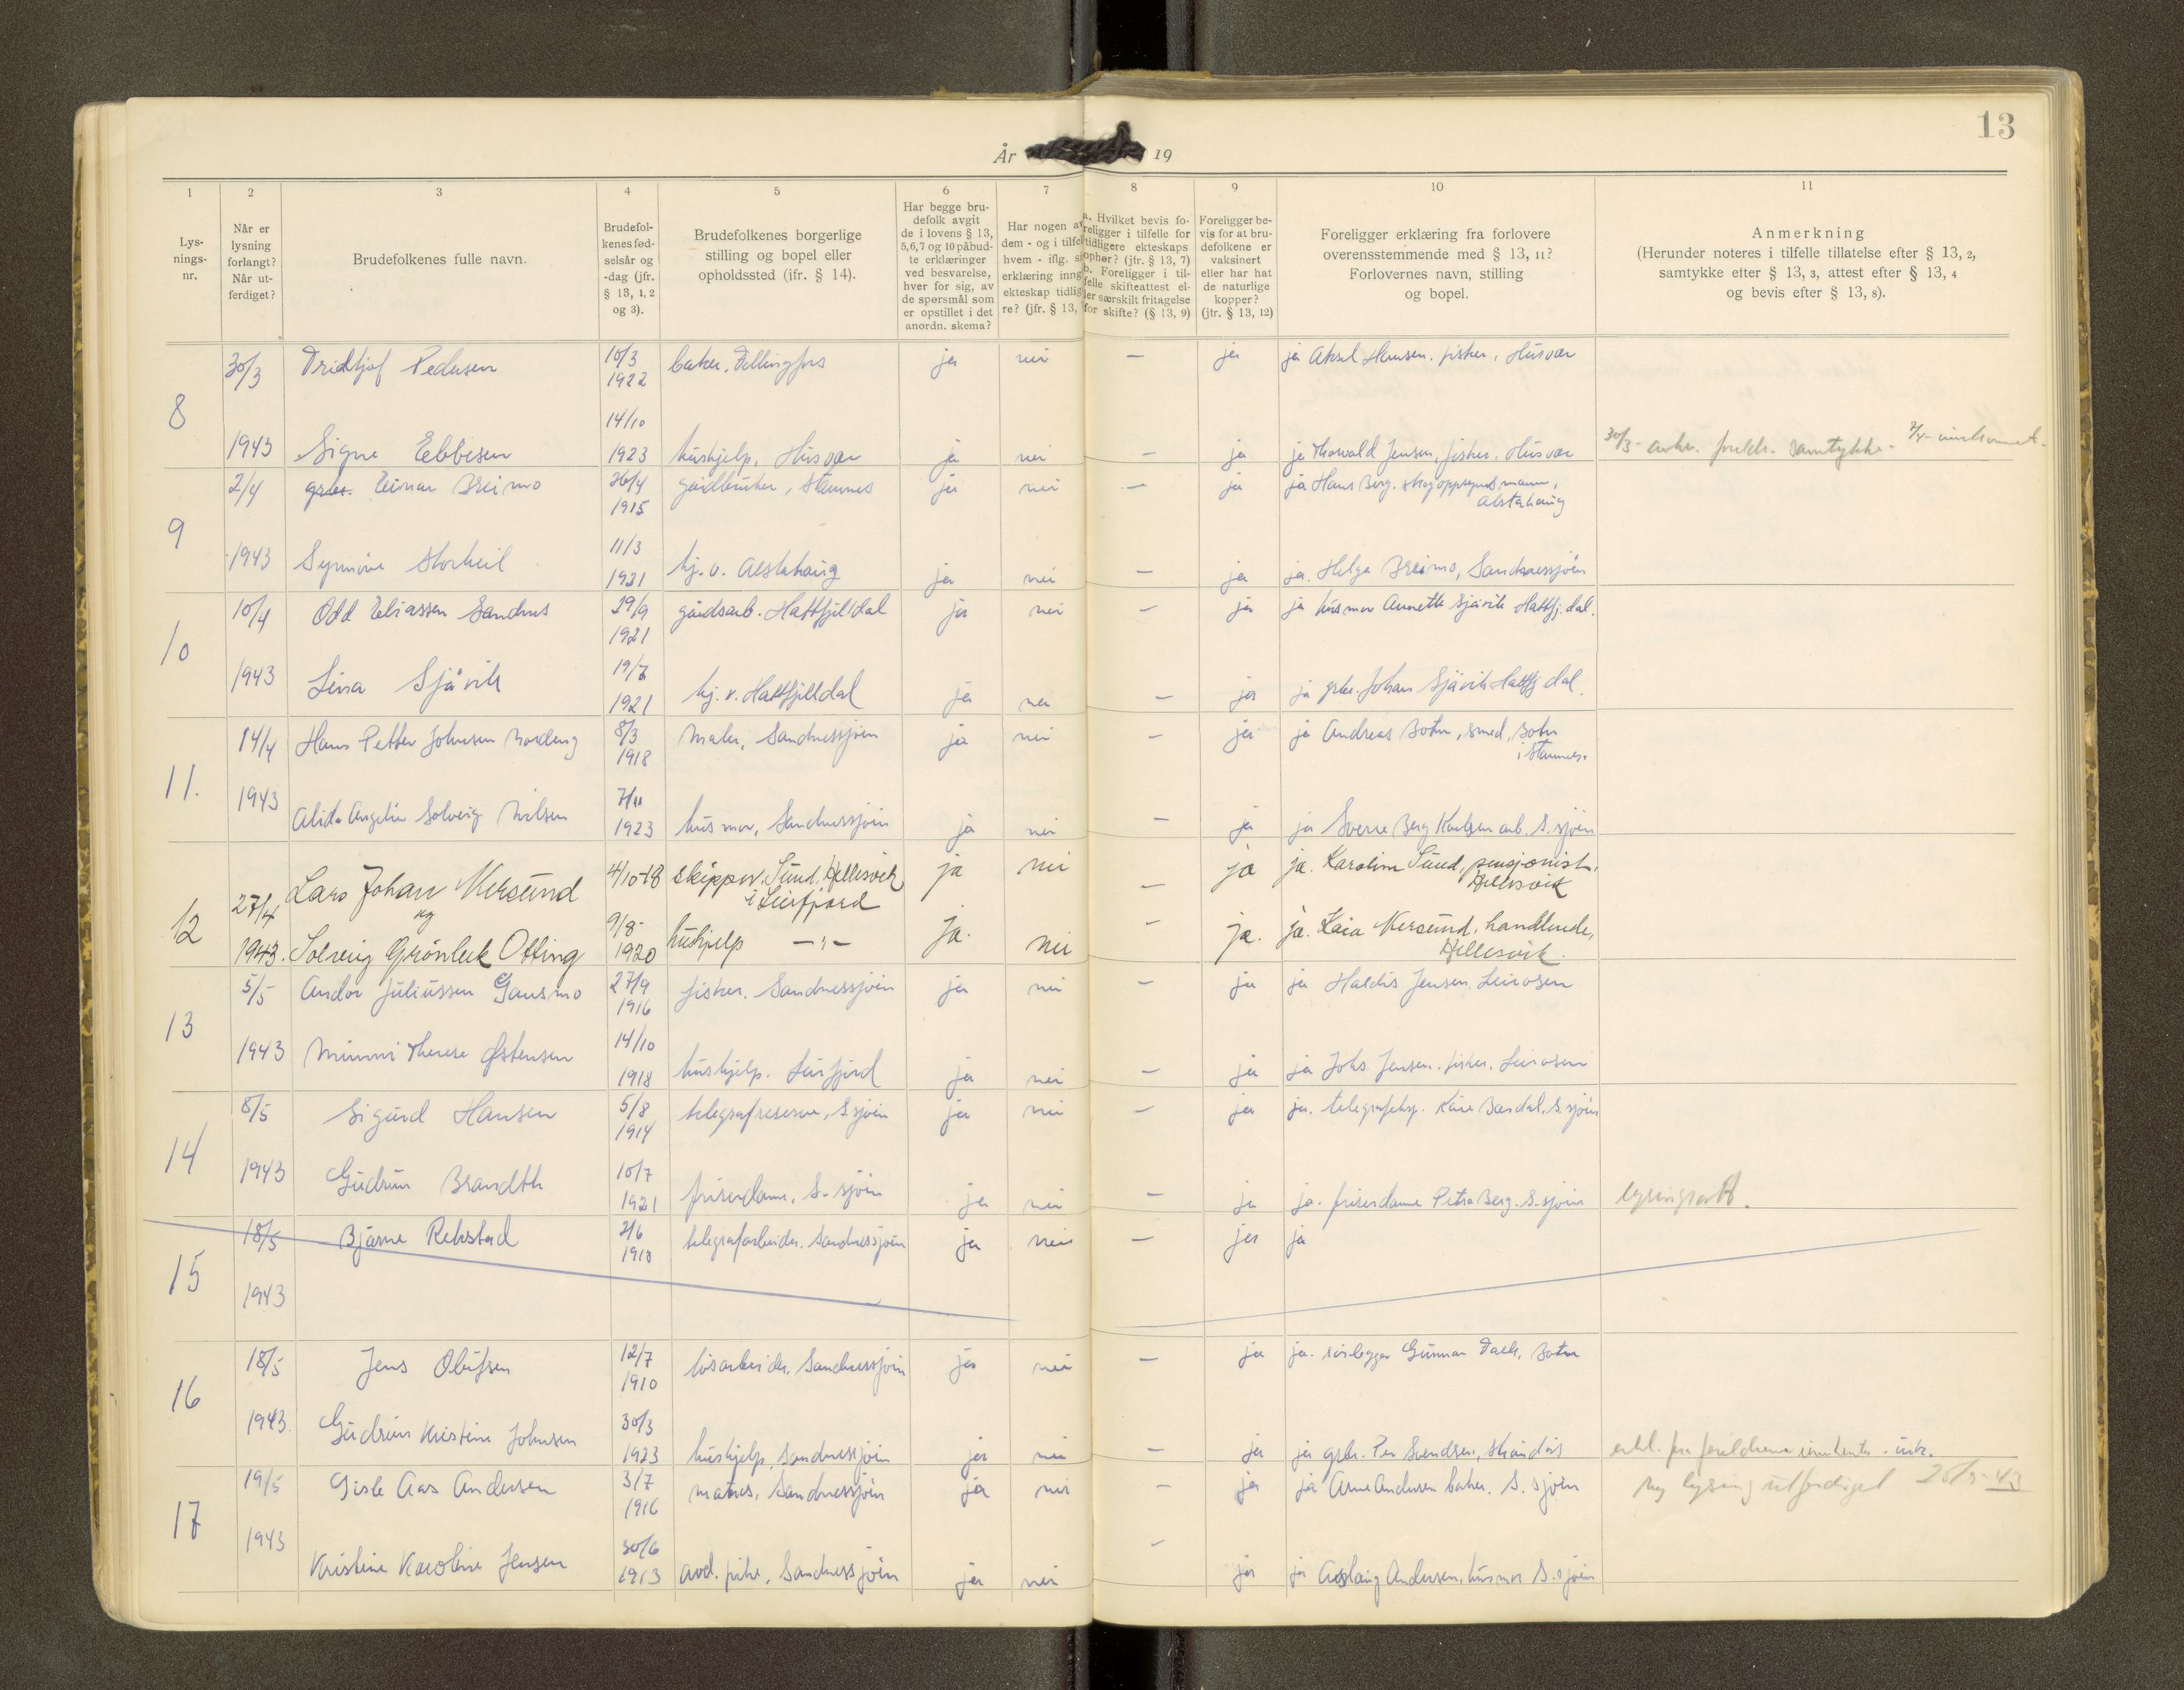 13
År 19
1 2 3 4 5 6 7 8 9 10 11
Lys-
nings-
nr.
Når er
lysning
forlangt?
Når ut-
ferdiget?
Brudefolkenes fulle navn.
Brudefol-
kenes fød-
selsår og
-dag (jfr.
§ 13, 1, 2
og 3).
Brudefolkenes borgerlige
stilling og bopel eller
opholdssted (ifr. § 14).
Har begge bru-
defolk avgit
de i lovens § 13,
5,6,7 og 10 påbud-
te erklæringer
ved besvarelse,
hver for sig, av
de spørsmål som
er opstillet i det
anordn. skema?
Har nogen av
dem - og i tilfel
hvem - iflg. si
erklæring inng
ekteskap tidlig
re? (jfr. § 13,
a. Hvilket bevis fo-
religger i tilfelle for
tidligere ekteskaps
ophør? (jfr. § 13, 7)
b. Foreligger i til-
felle skifteattest el-
ler særskilt fritagelse
for skifte? (§ 13, 9)
Foreligger be-
vis for at bru-
defolkene er
vaksinert
eller har hat
de naturlige
kopper?
(jfr. § 13, 12)
Foreligger erklæring fra forlovere
overensstemmende med § 13, 11?
Forlovernes navn, stilling
og bopel.
Anmerkning
(Herunder noteres i tilfelle tillatelse efter § 13, 2,
samtykke efter § 13, 3, attest efter § 13, 4
og bevis efter § 13, 8).
8
30/3 Fridtjof Pedersen 10/3 1922 baker. ja nei — ja ja Aksel Hansen. fisker, Husvær
1943 Signe Ebbesen 14/10 1923 hushjelp, Husvær ja nei — ja ja Thorvald Jensen, fisker. Husvær 30/3 samtykke.
9
2/4 grbr. Einar Breimo 26/4 1915 gårdbruker, Stamnes ja nei — ja ja Hans Berg. skogoppsynsmann,
Alstahaug
1943 Synnøve Storheil 11/3 1921 hj. v. Alstahaug ja nei — ja ja. Helga Breimo, Sandnessjøen
10
10/4 Odd Eliassen Sandnes 29/9 1921 gårdsarb. Hattfjelldal ja nei — ja ja husmor Annette Sjåvik Hattfj.dal.
1943 Lina Sjåvik 19/7 1921 hj. v. Hattfjelldal ja nei — ja ja grbr. Johan Sjåvik Hattfj.dal.
11.
14/4 Hans Petter Johnsen Nordeng 8/3 1918 Maler, Sandnessjøen ja nei — ja ja Andreas Botn, smed, Botn
i Stamnes.
1943 Alida Angelie Solveig Nilsen 7/11 1923 husmor, Sandnessjøen ja nei — ja ja Sverre Berg Karlsen arb. S.sjøen
12
27/4 Lars Johan Mersund 4/10-18 skipper. Sund, Hellesvik
i Leirfjord ja nei — ja ja. Karoline Sund, pensjonist,
Hellesvik
og
1943. Solveig Grønbeck Otting 9/8- 1920 hushjelp —"— ja. nei — ja. ja. Kaia Mersund, handlende,
Hellesvik.
13
5/5 Andor Juliussen Gausmo 27/9 1916 fisker. Sandnessjøen ja nei — ja ja Haldis Jensen, Leirosen
1943 Minni Therese Østensen 14/10 1918 hushjelp. Leirfjord ja nei — ja ja Johs. Jensen. fisker, Leirosen
14
8/5 Sigurd Hansen 5/8 1914 telegrafreserve, S.sjøen ja nei — ja ja. telegrafeksp. Kåre Bardal, S.sjøen
1943 Gudrun Brandth 10/7 1921 friserdame, S.sjøen ja nei — ja ja. friserdame Petra Berg. S.sjøen lysingsatt.
15
18/5 Bjarne Rekstad 2/6 1918 telegrafarbeider. Sandnessjøen ja nei — ja ja
1943
16
18/5 Jens Olufsen 12/7 1910 løsarbeider, Sandnessjøen ja nei — ja ja. rørlegger Gunnar Falk, Botn
1943. Gudrun Kristine Johnsen 30/3 1923 hushjelp, Sandnessjøen ja nei — ja ja grbr. Per Svendsen, erkl. fra foreldrene
17
19/5 Gisle Aas Andersen 3/7 1916 matros, Sandnessjøen ja nei — ja ja Arne Andersen baker. S.sjøen Ny lysing utferdiget 25/5-43
1943 Kristine Karoline Jensen 30/6 1913 avd. pike, Sandnessjøen ja nei — ja ja Aslaug Andersen, husmor S.sjøen